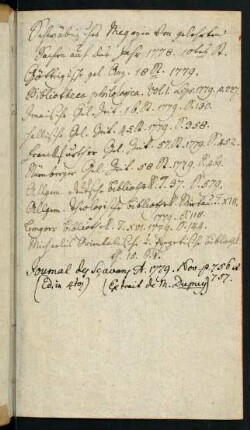 Schwäbisches Magazin von gelehrten
Sachen auf das Jahr 1778. 10tes St.
Göttingische gel. Anz. 18 St. 1779.
Bibliotheca philologica. Vol. I. Lips. 1779. p. 227.
Jenaische Gel. Zeit. 16. St. 1779. p. 130.
Hallische Gel. Zeit. 45 St. 1779. p. 358.
Frankfurther Gel. Zeit. 57. St. 1779. p. 452.
Nürnberger Gel. Zeit. 58 St. 1779. p.
Allgem. Deutsche Bibliothek. T. 37. p. 579.
Allgem. Theologische Bibliothek Mietau. T. XII.
1779. p. 110.
Bibliothek. T. XVI. 1779. p. 144.
Michaelis Orientalische u. Exegetische Bibliothek
Th. 15. p.
Journal des Sçavans A. 1779. Nov. p 756 et
(Edin 4to) (Extrait de M. Dupuy) 757.